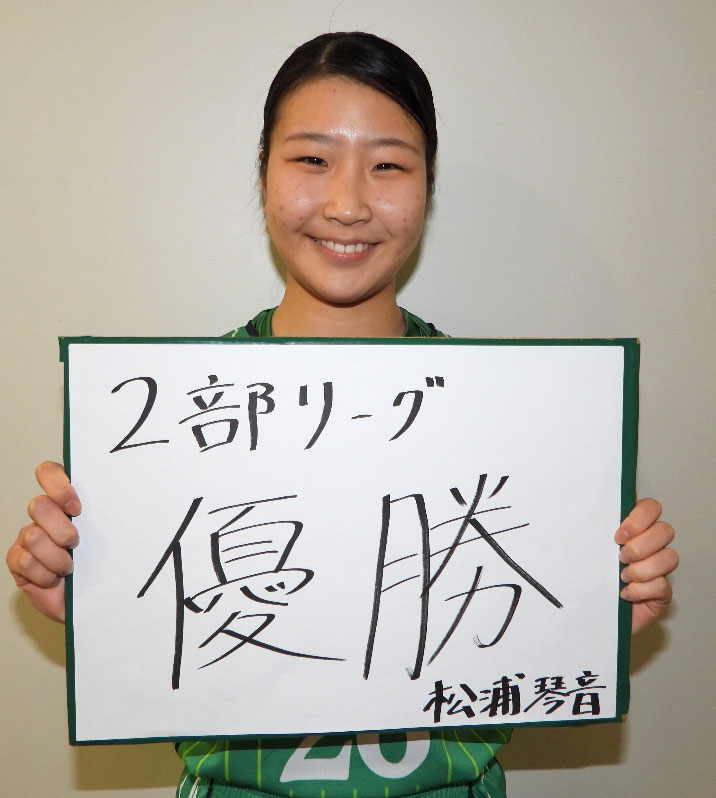 2部リーグ
優勝
松浦琴音
20